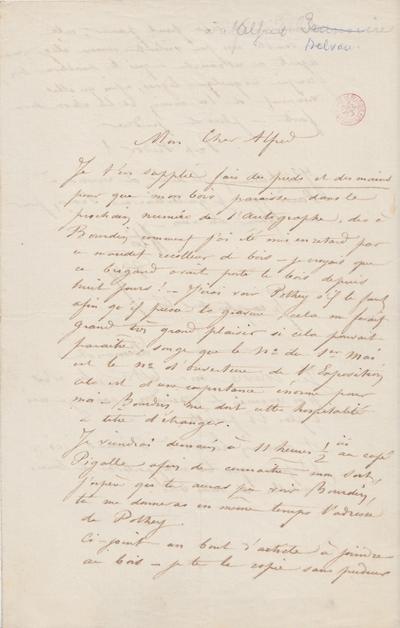 à Alfred
Delvau
Mon Cher Alfred
Je t'en supplie fais des pieds et des mains
pour que mon bois paraisse dans le
prochain numéro de l'Autographe, dis à
Bourdin comment j'ai été mis en retard par
ce maudit récolteur de bois - je croyais que
ce brigand avait porté le bois depuis
huit jours ! - J'irai voir Pothey s'il le faut
afin qu'il puisse le graver cela me ferait
grand très grand plaisir si cela pouvait
paraître songe que le No du 1er Mai
est le No d'ouverture de l'Exposition
cela est d'une importance énorme pour
moi - Bourdin me doit cette hospitalité
à titre d'étranger.
Je viendrai demain à 11 heures 1/2 ici au café
Pigalle afin de connaître mon sort,
j'espère que tu auras pu voir Bourdin,
tu me donneras en même temps l'adresse
de Pothey.
Ci-joint un bout d'article à joindre
au bois - je te le copie sans pudeur